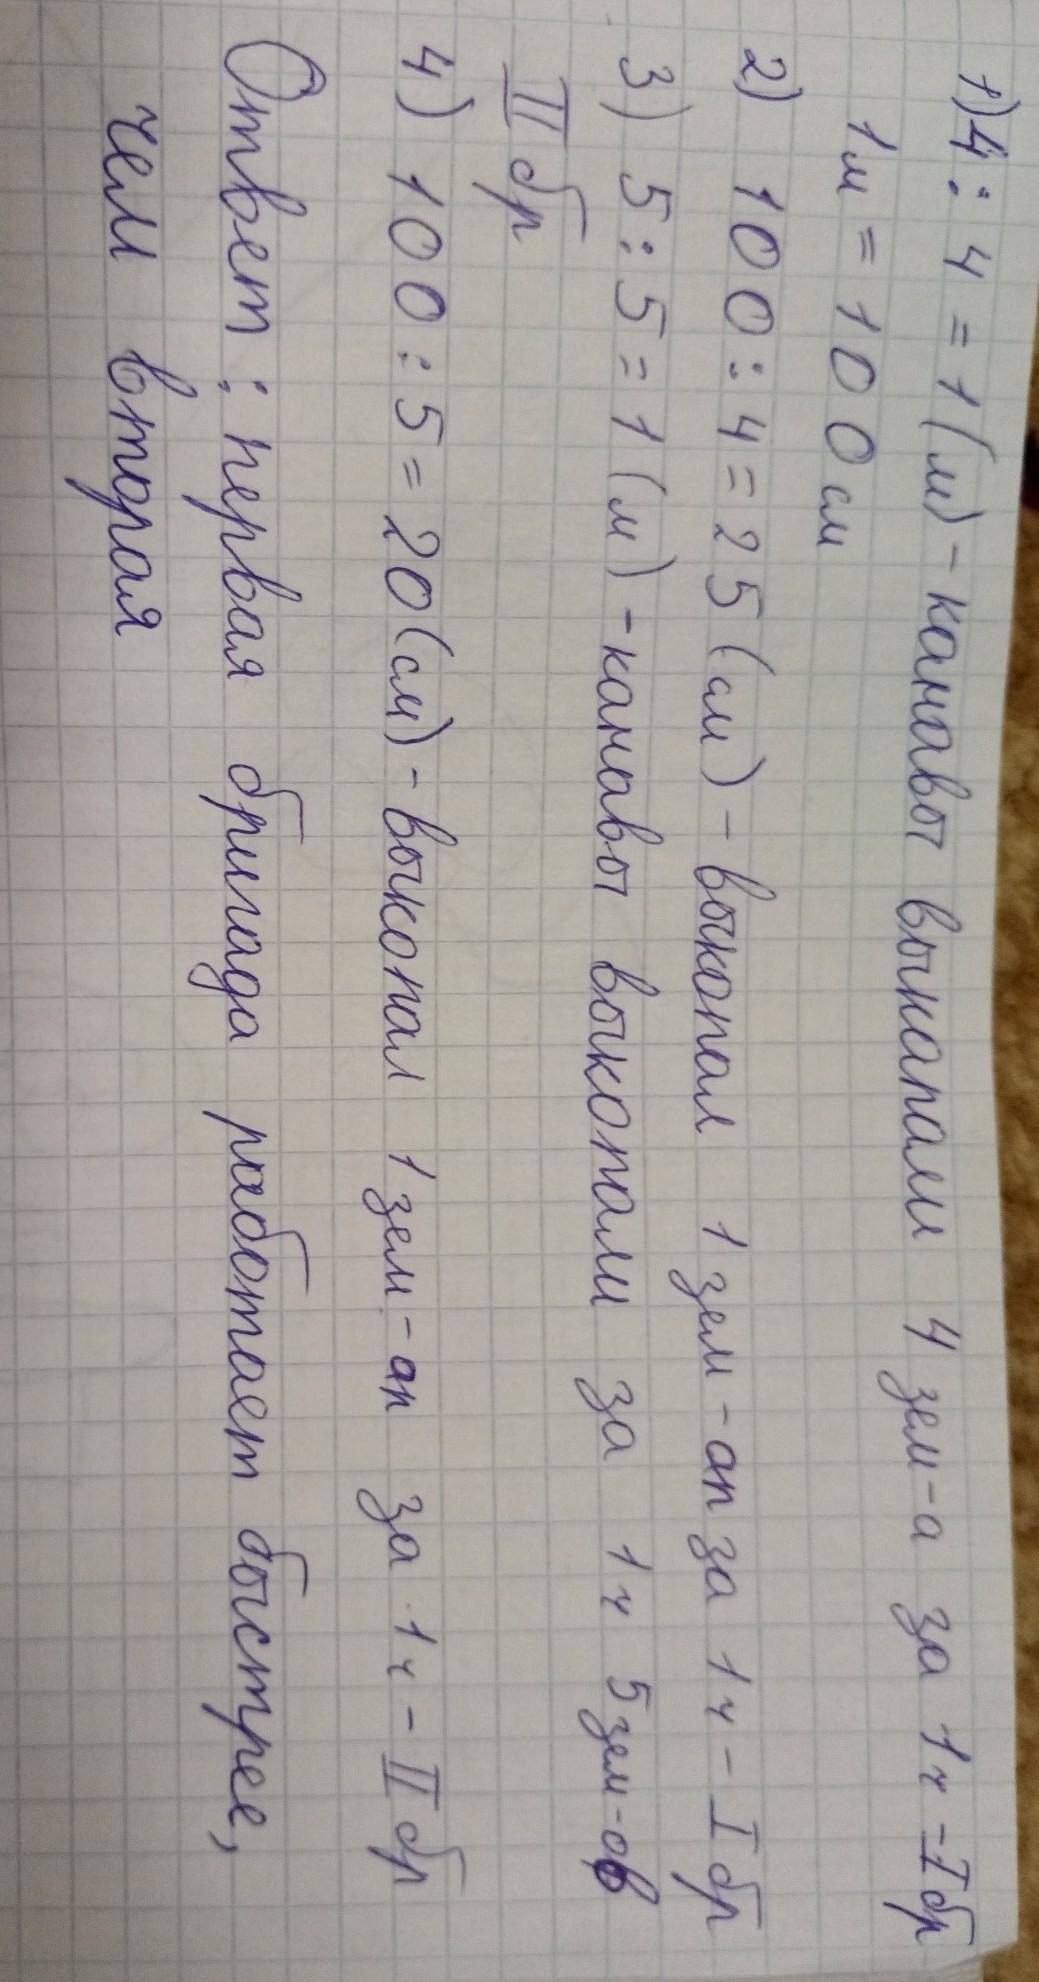 1) 4 : 4 = 1 (м) - канавы выкапали 4 зем-а за 1ч - I бр
1м = 100 см
2) 100 : 4 = 25 (см) - выкопал 1 зем-ап за 1ч - I бр
3) 5 : 5 = 1 (м) - канавы выкопали за 1ч 5 зем-ов
II бр
4) 100 : 5 = 20 (см) - выкопал 1 зем-ап за 1ч - II бр
Ответ : первая бригада работает быстрее,
чем вторая